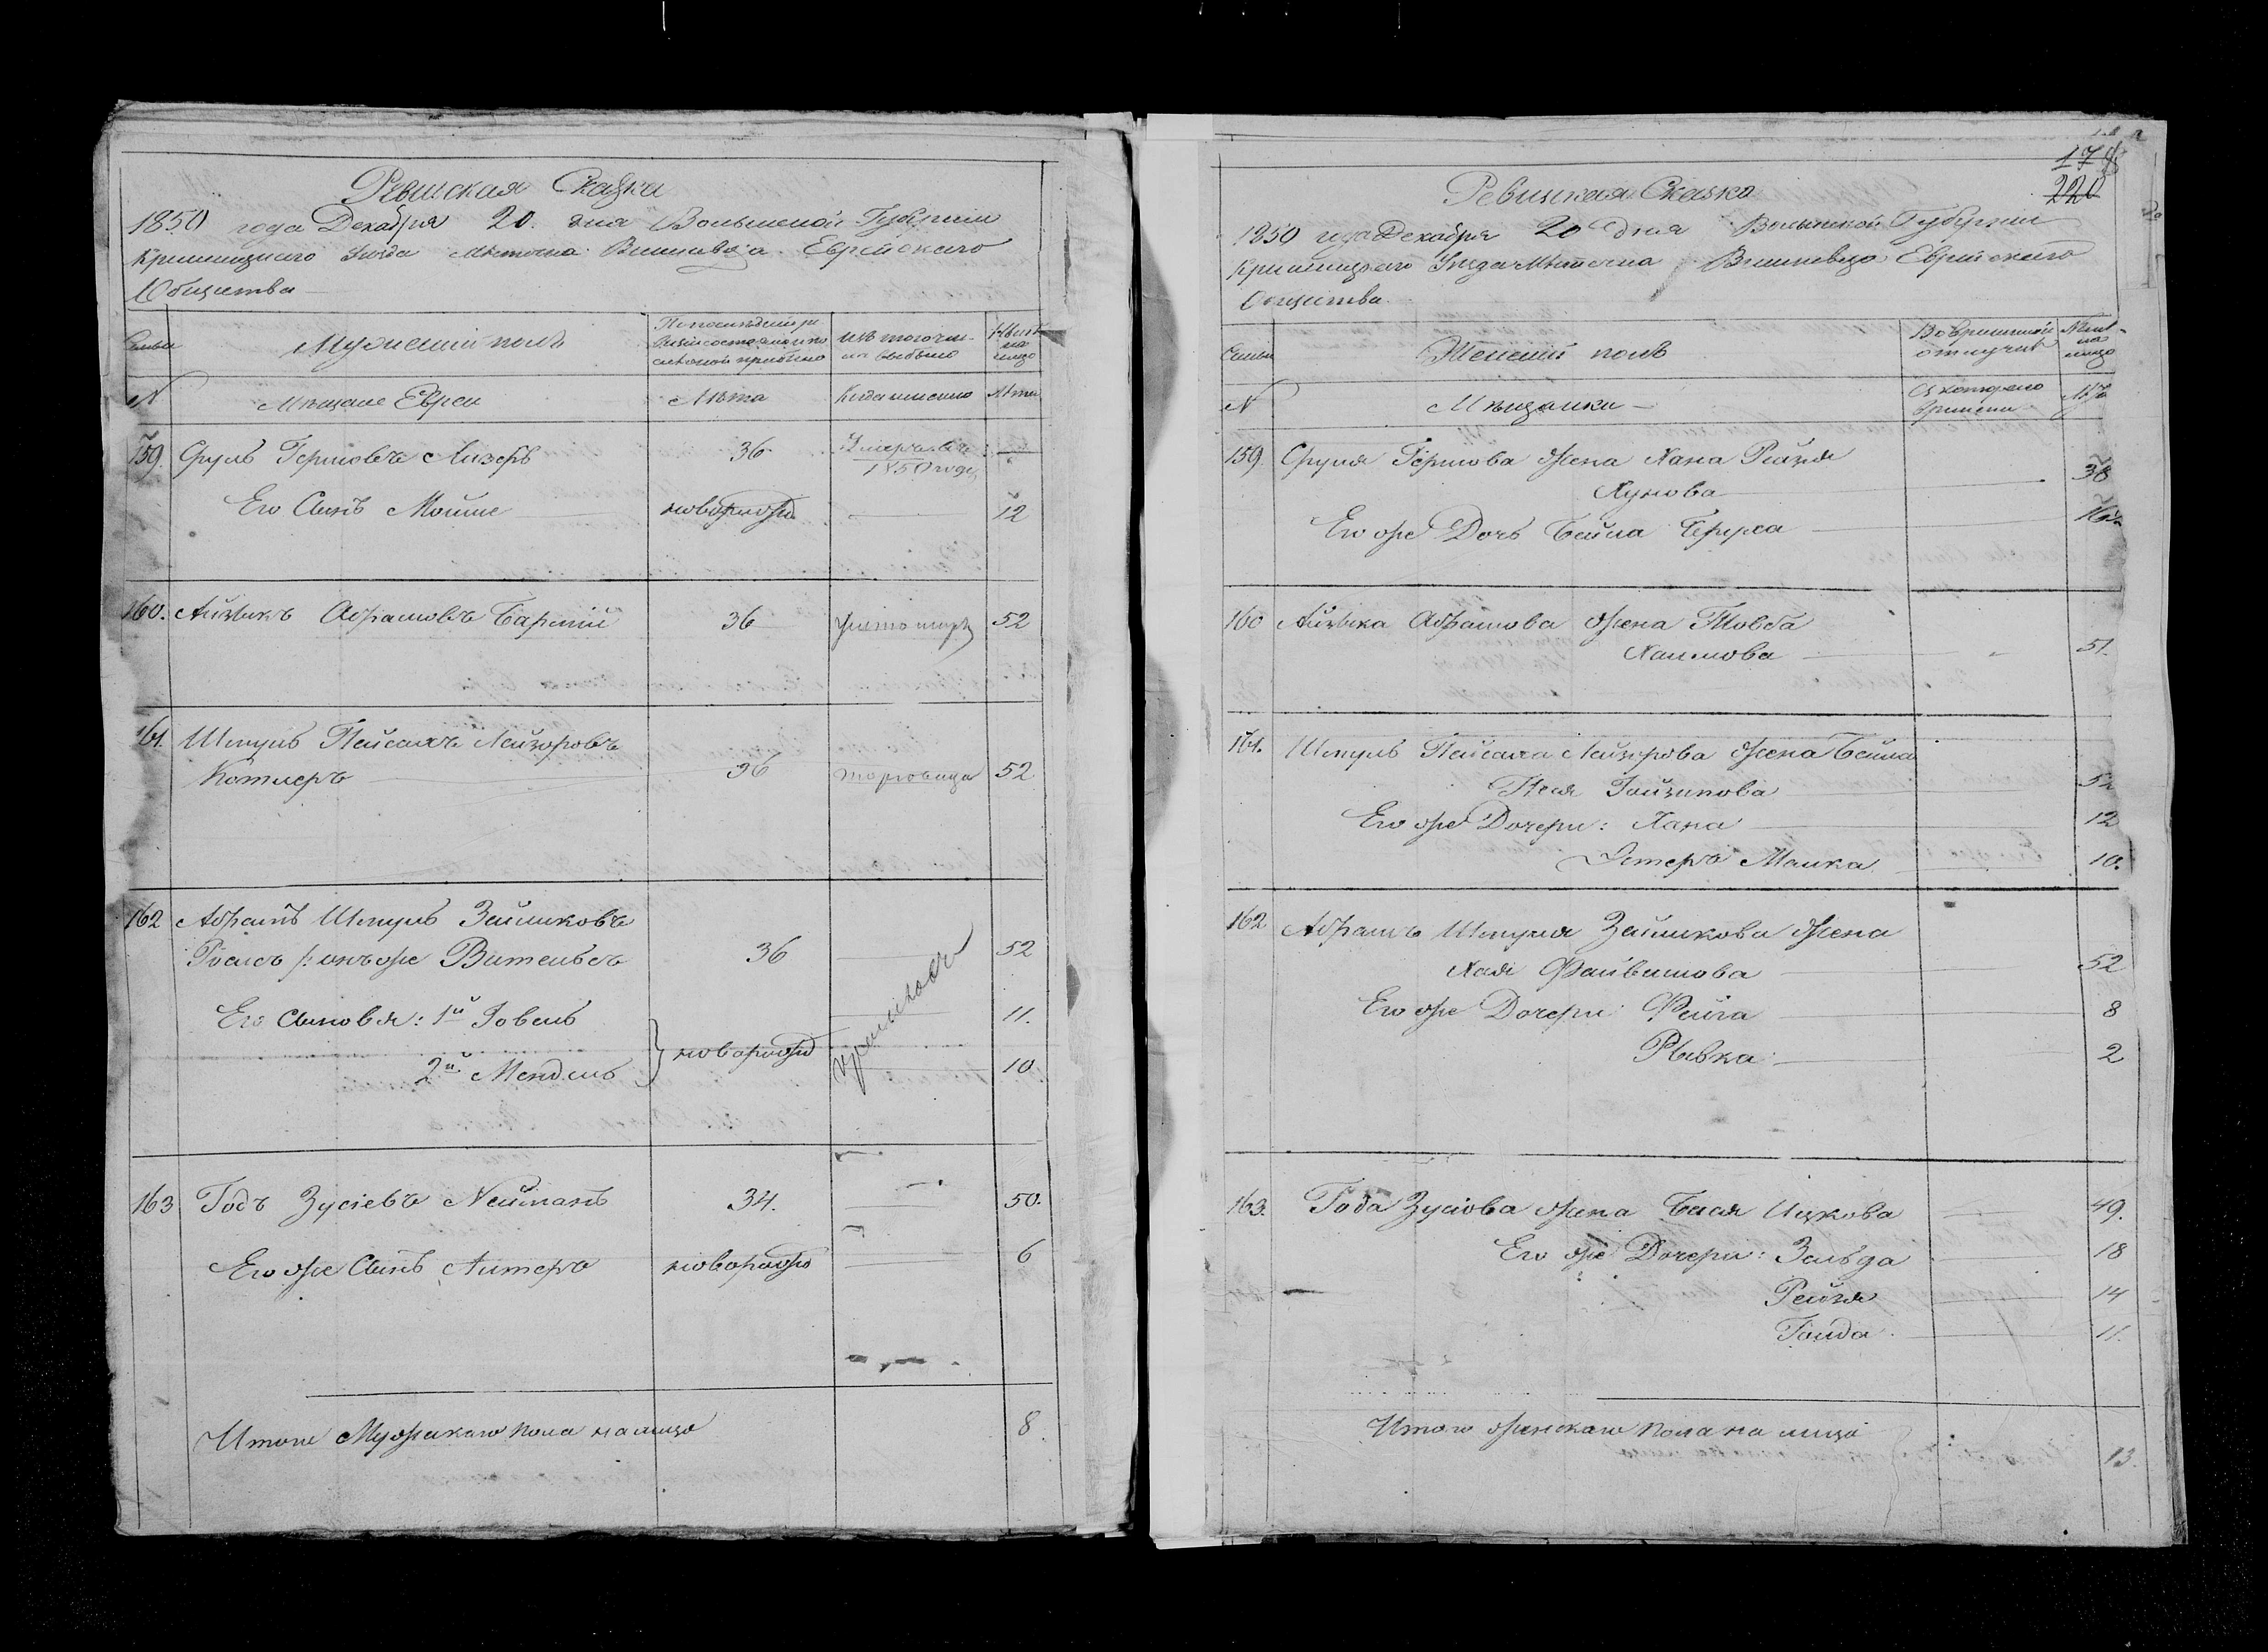 Ревизская Сказка
1850 года Декабря 20. дня Волынской Губернии
Кременецкого Уезда Местечка Вишневца Еврейского
Общества
Семьи
Мужеский полъ
Изъ того чис-
ла выбыло
Ныне
на
лицо
№
Мещане Евреи
Лета
Когда именно
Лета
159. Сруль Гершовъ Лизеръ 36 Умеръ въ 1850 годе —
Его Сынъ Мошко новорожд 12
160. Айзикъ Абрамовъ Барский 36 52
161. Шмуль Пейсахъ Лейзоровъ
Котлеръ 36 52
162 Абрамъ Шмуль Зейликовъ
онъ же Вительсъ 36 52
Его Сыновья: 1й Иовель 11.
2й Мендель новорожд 10
163 Годъ Зусiевъ Нейманъ 34. 50.
Его же Сынъ Антеръ новорожд 6
Итого Мужскаго пола на лицо 8.
178
220
Ревизская Сказка
1850 года Декабря 20 дня Волынской Губернии
Кременецкого Уезда Местечка Вишневца Еврейского
Общества.
Семьи
Женский полъ
Во временной
отлучке
Ныне
на
лицо
№
Мещанки
Съ котораго
времени
Лета
159. Сруля Гершова жена Хана Рейзя
38
Его же Дочь Бейла Бруха 16
160 Айзика Абрамова жена Товба
Хаимова 51.
161. Шмуль Пейсаха Лейзорова жена Бейла
52
Его же Дочери: Хана 12
Эстеръ Малка 10.
162 Абрамъ Шмуля Зейликова жена
Хая Файвишова 52
Его же Дочери Фейга 8
Рывка 2
163. Года Зусiова жена Бася Ицкова 49.
Его же Дочери: Зельда 18
Рейзя 14
11.
Итого женскаго пола на лицо
13.